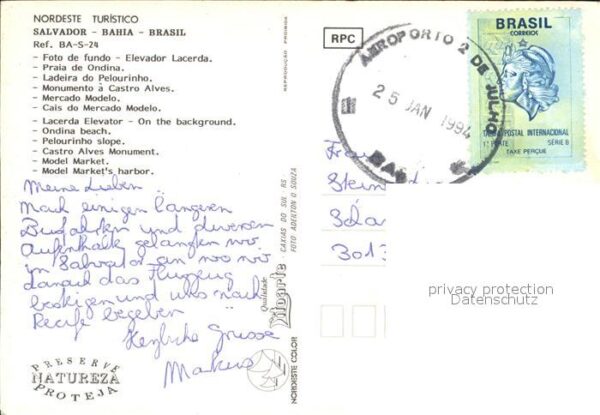 NORDESTE TURÍSTICO
SALVADOR - BAHIA - BRASIL
Ref. BA-S-24
- Foto de fundo - Elevador Lacerda.
- Praia de Ondina.
- Ladeira do Pelourinho.
- Monumento à Castro Alves.
- Mercado Modelo.
- Cais do Mercado Modelo.
- Lacerda Elevator - On the background.
- Ondina beach.
- Pelourinho slope.
- Castro Alves Monument.
- Model Market.
- Model Market's harbor.
Meine Lieben
Nach einigen längeren
Busfahrten und diversen
Aufenthalte gelangten wir
in Salvador an wo wir
danach das Flugzeug
besteigen und uns nach
Recife begeben
Herzliche Grüsse
Markus
PRESERVE
NATUREZA
PROTEJA
REPRODUÇÃO PROIBIDA
CAXIAS DO SUL - RS
FOTO ADEILTON O SOUZA
Qualidade
NORDESTE COLOR
RPC
AEROPORTO 2 DE JULHO
25 JAN 1994
BRASIL
CORREIOS
POSTAL INTERNACIONAL
SÉRIE B
TAXE PERÇUE
Stein
301
privacy protection
Datenschutz